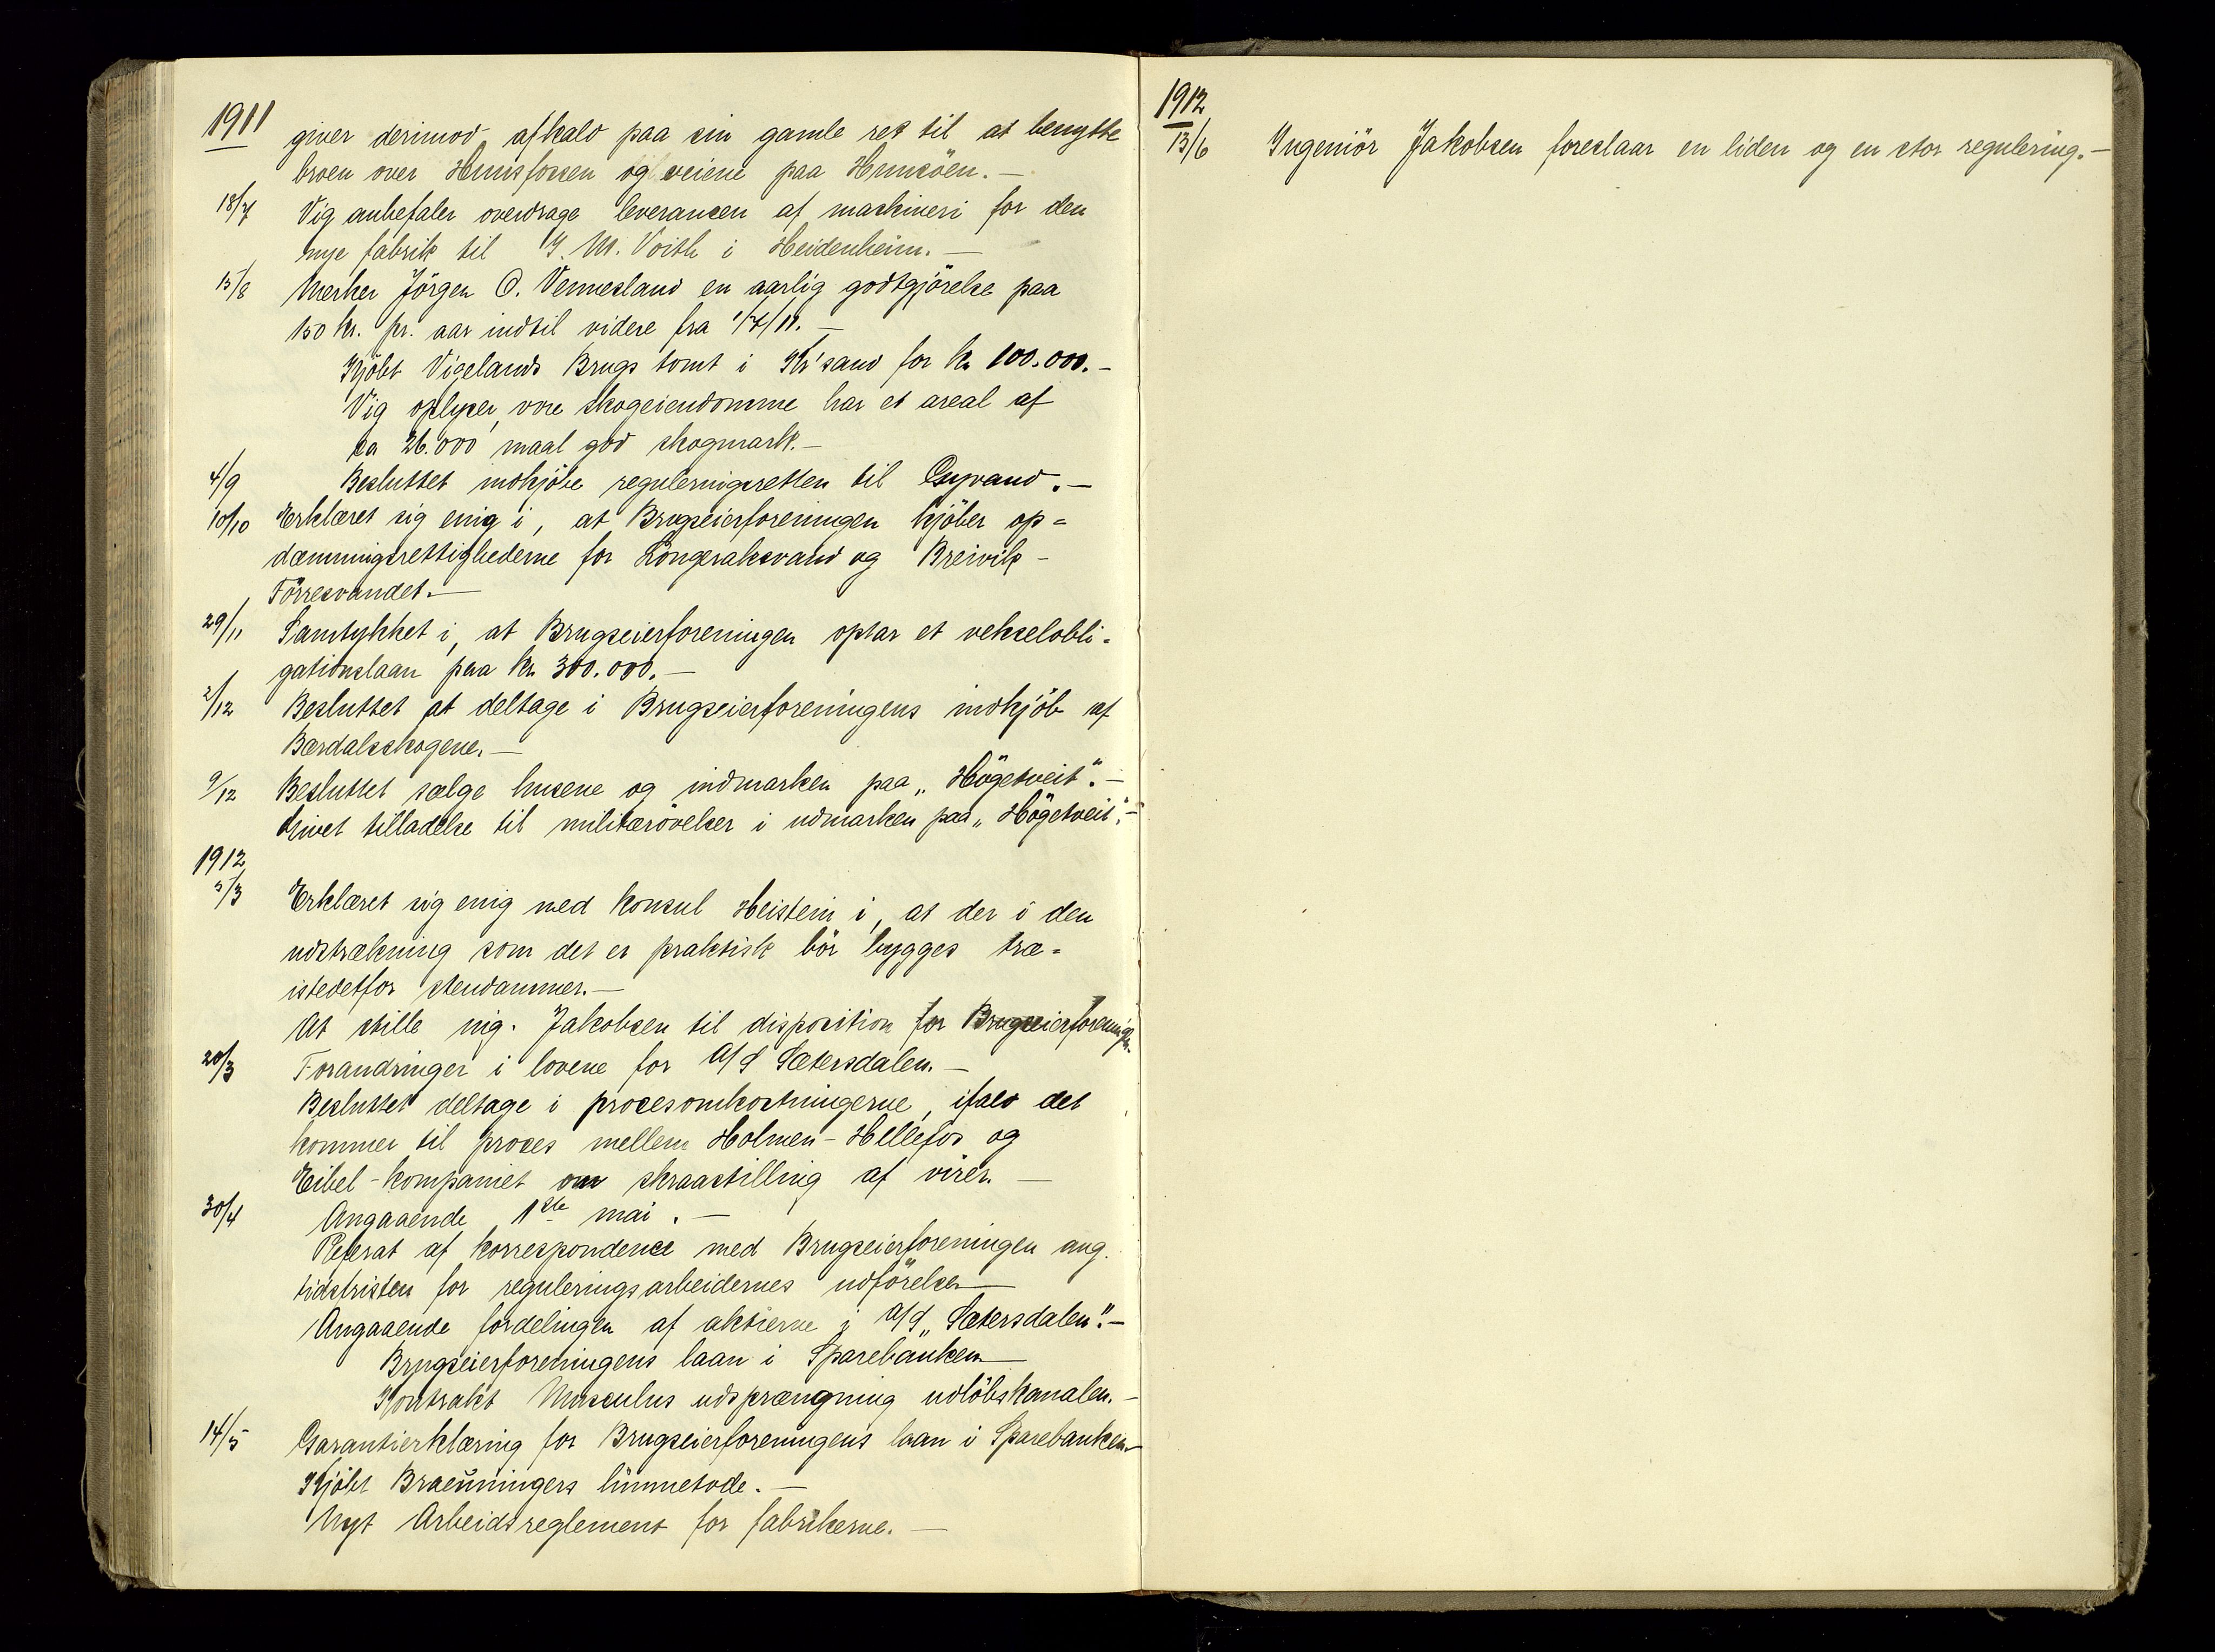 1911 giver derimod afkald paa sin gamle ret til at benytte
broen over Hunsfossen og veiene paa Hunsöen.—
18/7 Vig anbefaler overdrage leverancen af maskineri for den
nye fabrik til J. M. Voith i Heidenheim.—
15/8 Merker Jörgen O. Vennesland en aarlig godtgjörelse paa
150 kr. pr. aar indtil videre fra 1/7/11.—
Kjöbt Vigelands Brugs tomt i Kr'sand for kr 100.000.—
Vig oplyser, vore skogeiendomme har et areal af
ca 26.000 maal god skogmark.—
4/9 Besluttet indkjöbe reguleringsretten til Gyvand.—
10/10 Erklæret sig enig i, at Brugseierforeningen kjöber op=
dæmningsrettighederne for Longeraksvand og Breivik-
Förresvandet.—
29/11 Samtykket i, at Brugseierforeningen optar et vekselobli=
gationslaan paa kr. 300.000.—
2/12 Besluttet at deltage i Brugseierforeningens indkjöb af
Bærdalsskogene.—
9/12 Besluttet sælge husene og indmarken paa „Högetveit".—
Givet tilladelse til militærövelser i udmarken paa „Högetveit".—
1912
5/3 Erklæret sig enig med konsul Heistein i, at der i den
udstrækning som det er praktisk bör bygges træ=
istedetfor stendammer.—
At stille ing. Jakobsen til disposition for Brugseierforeningen.
20/3 Forandringer i lovene for A/S Sætersdalen.—
Besluttet deltage i procesomkostningerne, ifald det
kommer til proces mellem Holmen-Hellefos og
Eibel-kompaniet om skraastilling af virer.—
30/4 Angaaende 1ste mai.—
Referat af korrespondence med Brugseierforeningen ang.
tidsfristen for reguleringsarbeidernes udförelse—
Angaaende fordelingen af aktierne i A/S „Sætersdalen".—
Brugseierforeningens laan i Sparebanken—
Kontrakt Masculus udsprængning udlöbskanalen.—
14/5 Garantierklæring for Brugseierforeningens laan i Sparebanken.—
Kjöbt Braeuningers limmetode.—
Nyt Arbeidsreglement for fabrikerne.—
1912
13/6 Ingeniör Jakobsen foreslaar en liden og en stor regulering.—